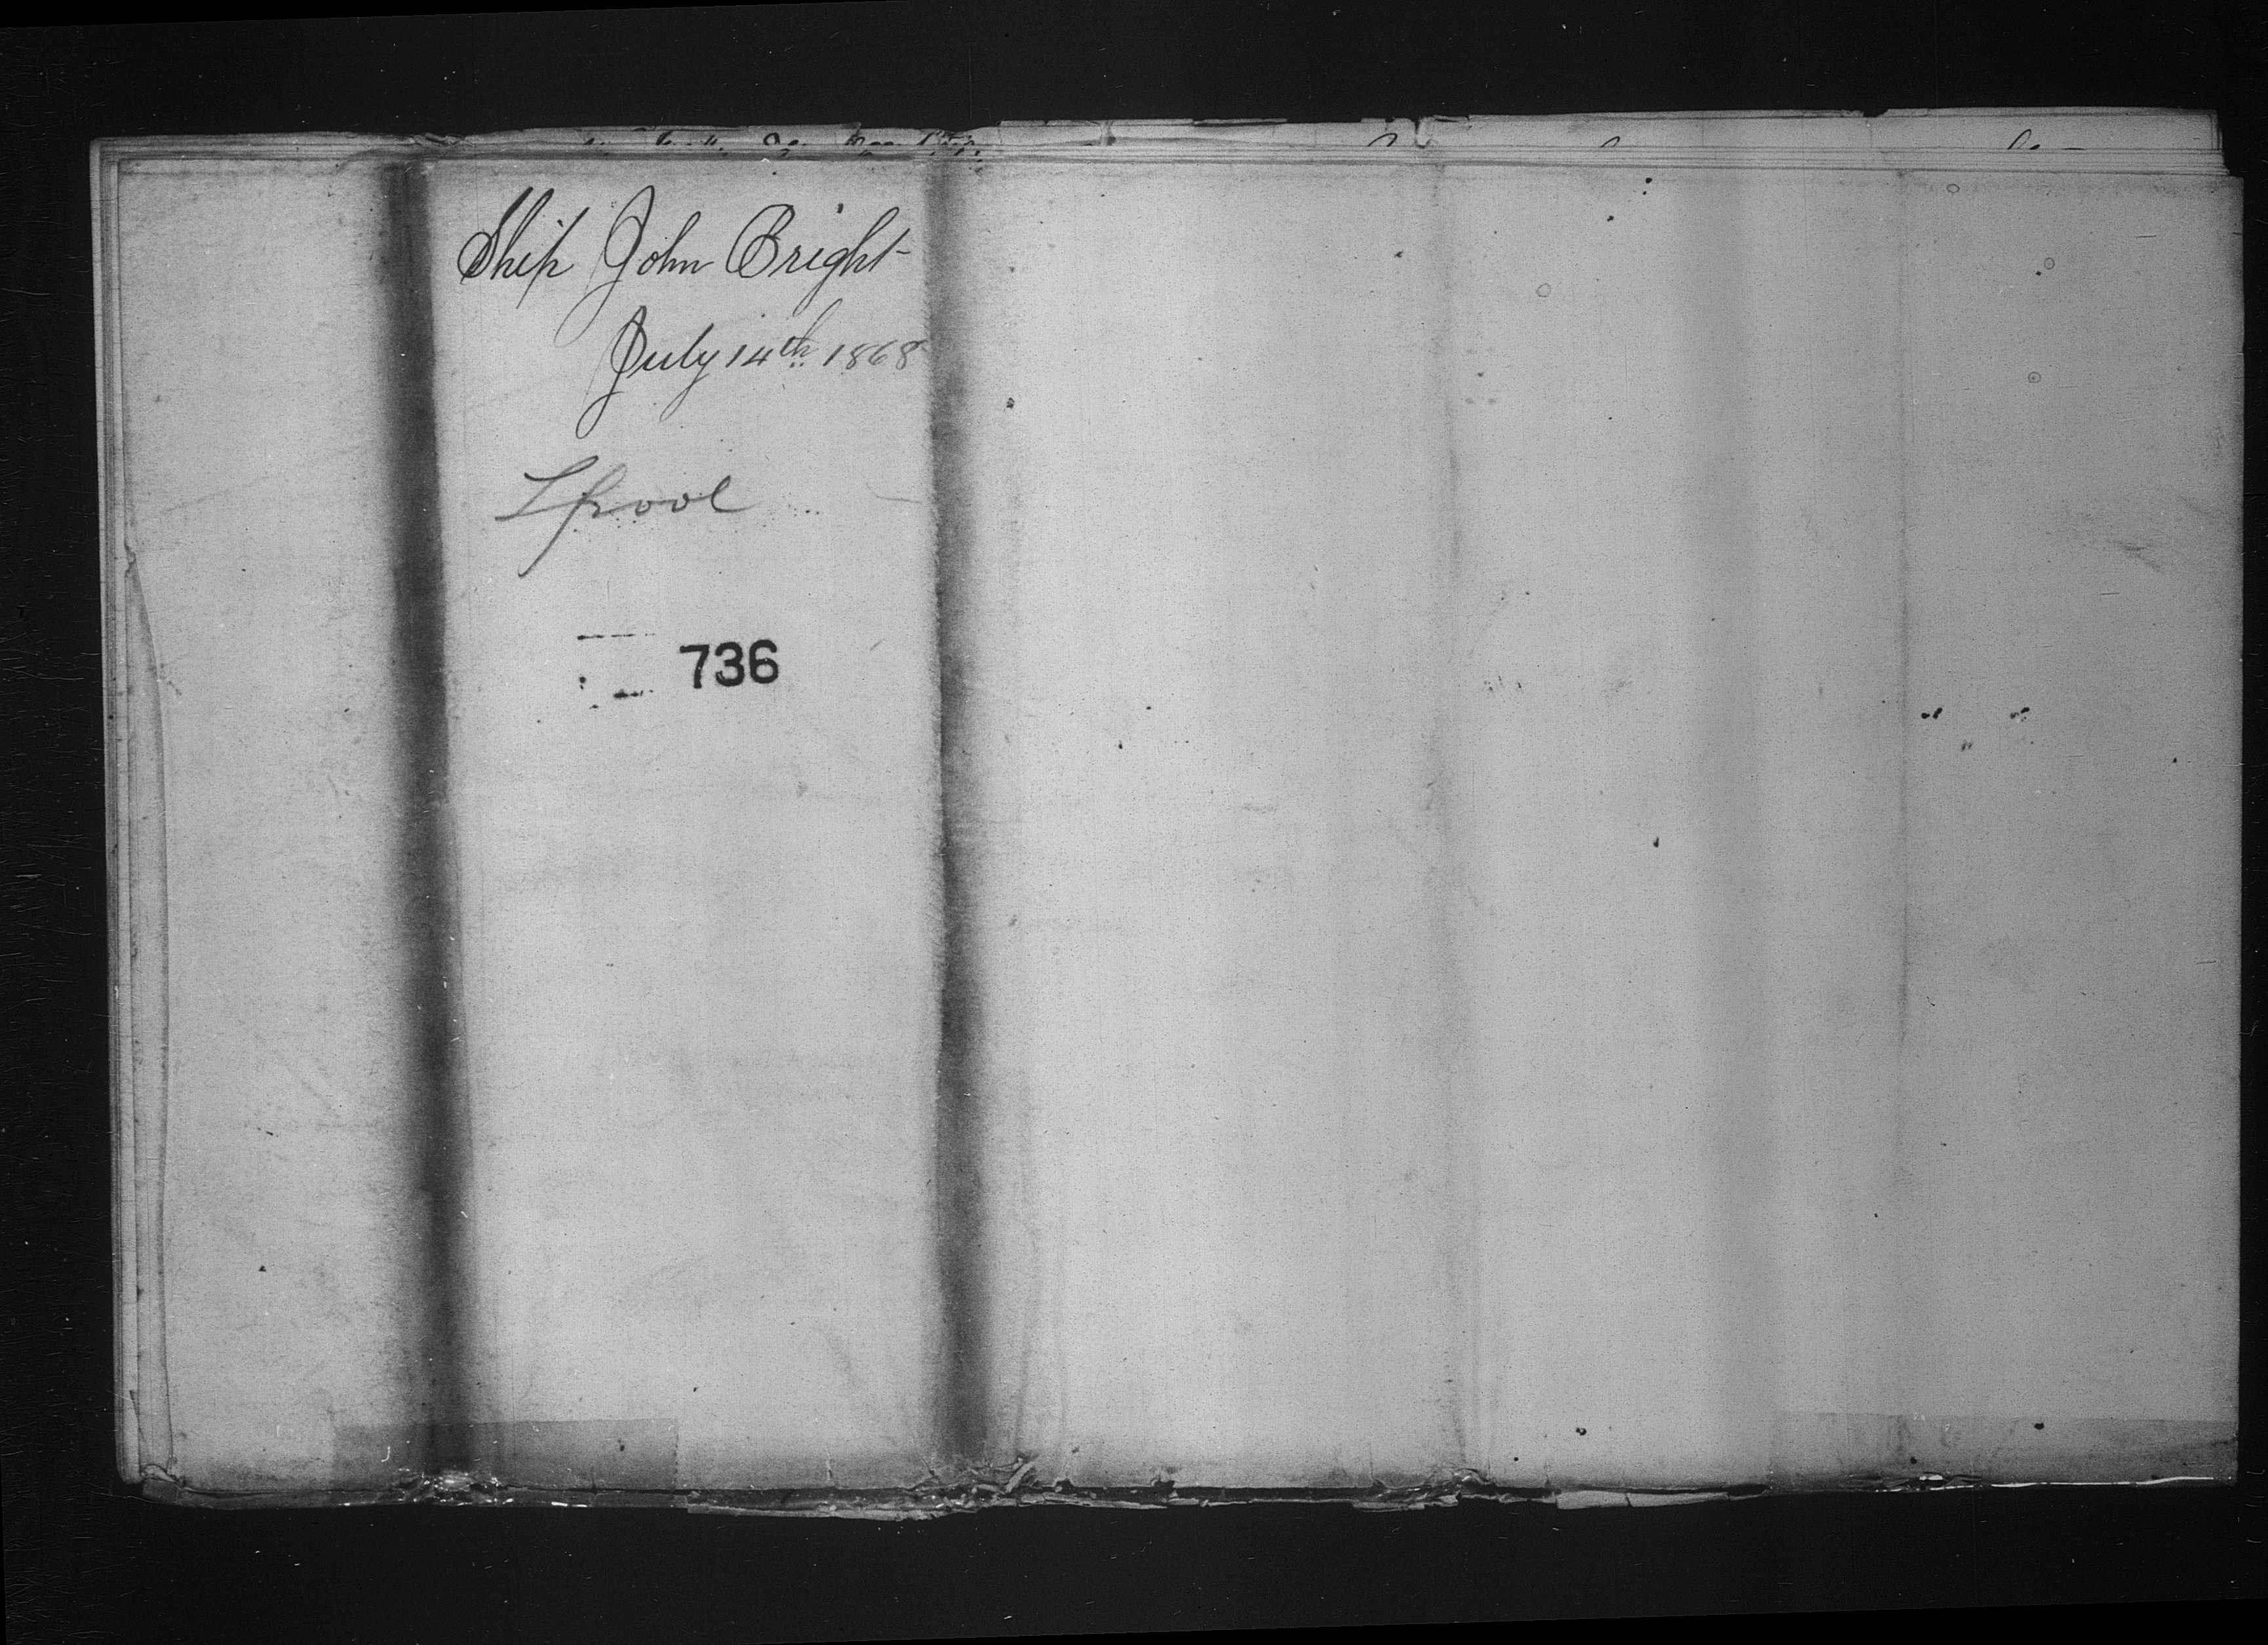 Ship John Bright
July 14th 1868
Lpool
736